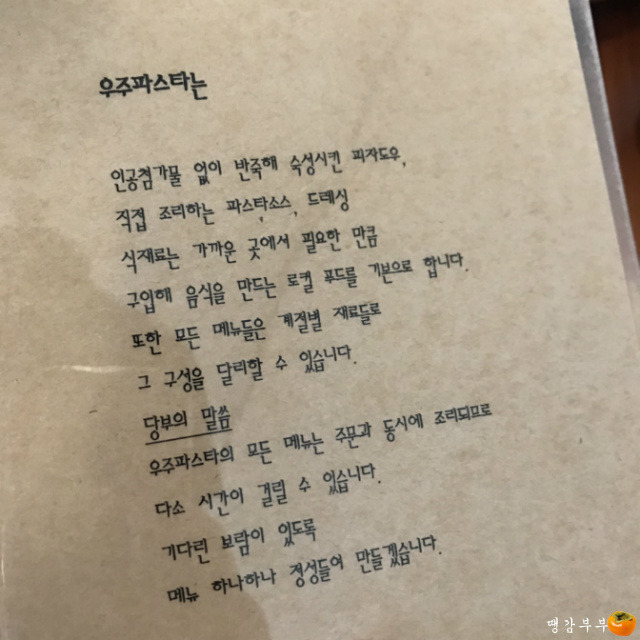 우주파스타는
인공첨가물 없이 반죽해 숙성시킨 피자도우,
직접 조리하는 파스타소스, 드레싱
식재료는 가까운 곳에서 필요한 만큼
구입해 음식을 만드는 로컬 푸드를 기본으로 합니다.
또한 모든 메뉴들은 계절별 재료들로
그 구성을 달리할 수 있습니다.
당부의 말씀
우주파스타의 모든 메뉴는 주문과 동시에 조리되므로
다소 시간이 걸릴 수 있습니다.
기다린 보람이 있도록
메뉴 하나하나 정성들여 만들겠습니다.
땡감부부